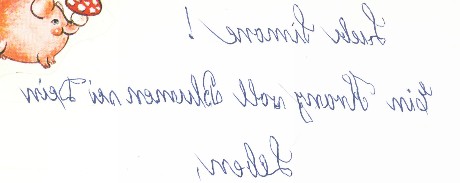 Liebe Simone!
Ein Kranz voll Blumen sei Dein
Leben,